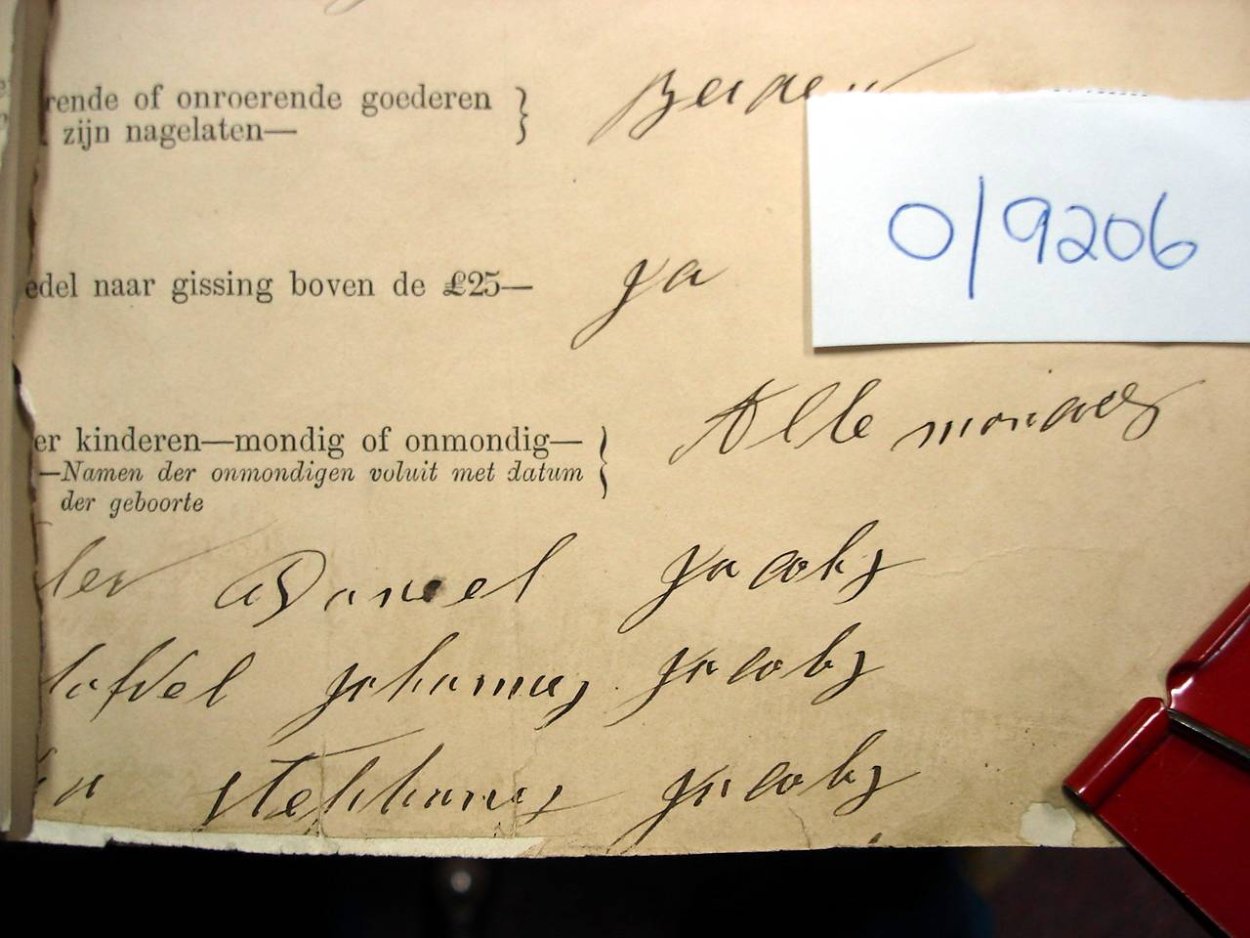 rende of onroerende goederen } Beiden
zijn nagelaten—
0/9206
edel naar gissing boven de £25— Ja
er kinderen—mondig of onmondig— } Alle mondig
—Namen der onmondigen voluit met datum
der geboorte
Daniel Jacobs
Johannes Jacobs
Stephanus Jacobs